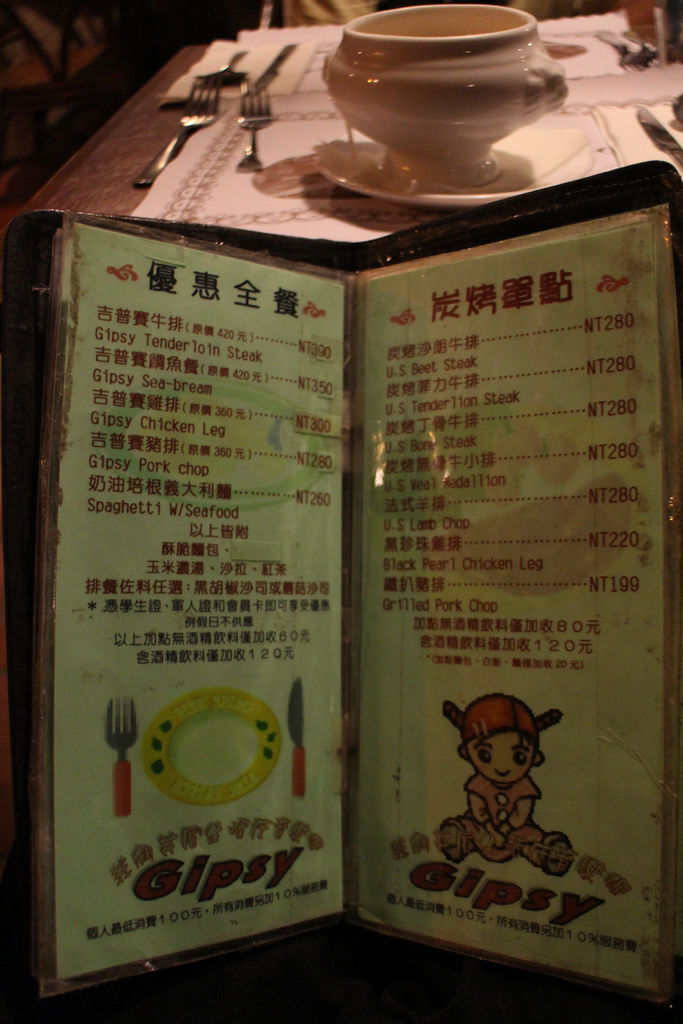 優惠全餐
吉普賽牛排(原價420元)·········NT390
Gipsy Tenderloin Steak
吉普賽鯛魚餐(原價420元)·······NT350
Gipsy Sea-bream
吉普賽雞排(原價360元)·········NT300
Gipsy Chicken Leg
吉普賽豬排(原價360元)·········NT280
Gipsy Pork chop
奶油培根義大利麵············NT260
Spaghetti W/Seafood
以上皆附
酥脆麵包、
玉米濃湯、沙拉、紅茶
排餐佐料任選：黑胡椒沙司或蘑菇沙司
*憑學生證、軍人證和會員卡即可享受優惠
例假日不供應
以上加點無酒精飲料僅加收60元
含酒精飲料僅加收120元
Gipsy
個人最低消費100元，所有消費另加10%服務費
炭烤單點
炭烤沙朗牛排···············NT280
U.S Beet Steak
炭烤菲力牛排···············NT280
U.S Tenderlion Steak
炭烤丁骨牛排···············NT280
U.S Bone Steak
炭烤無骨牛小排·············NT280
U.S Veal Medallion
法式羊排··················NT280
U.S Lamb Chop
黑珍珠雞排················NT220
Black Pearl Chicken Leg
鐵扒豬排··················NT199
Grilled Pork Chop
加點無酒精飲料僅加收80元
含酒精飲料僅加收120元
*(加點麵包、白飯、麵僅加收20元)
Gipsy
個人最低消費100元，所有消費另加10%服務費